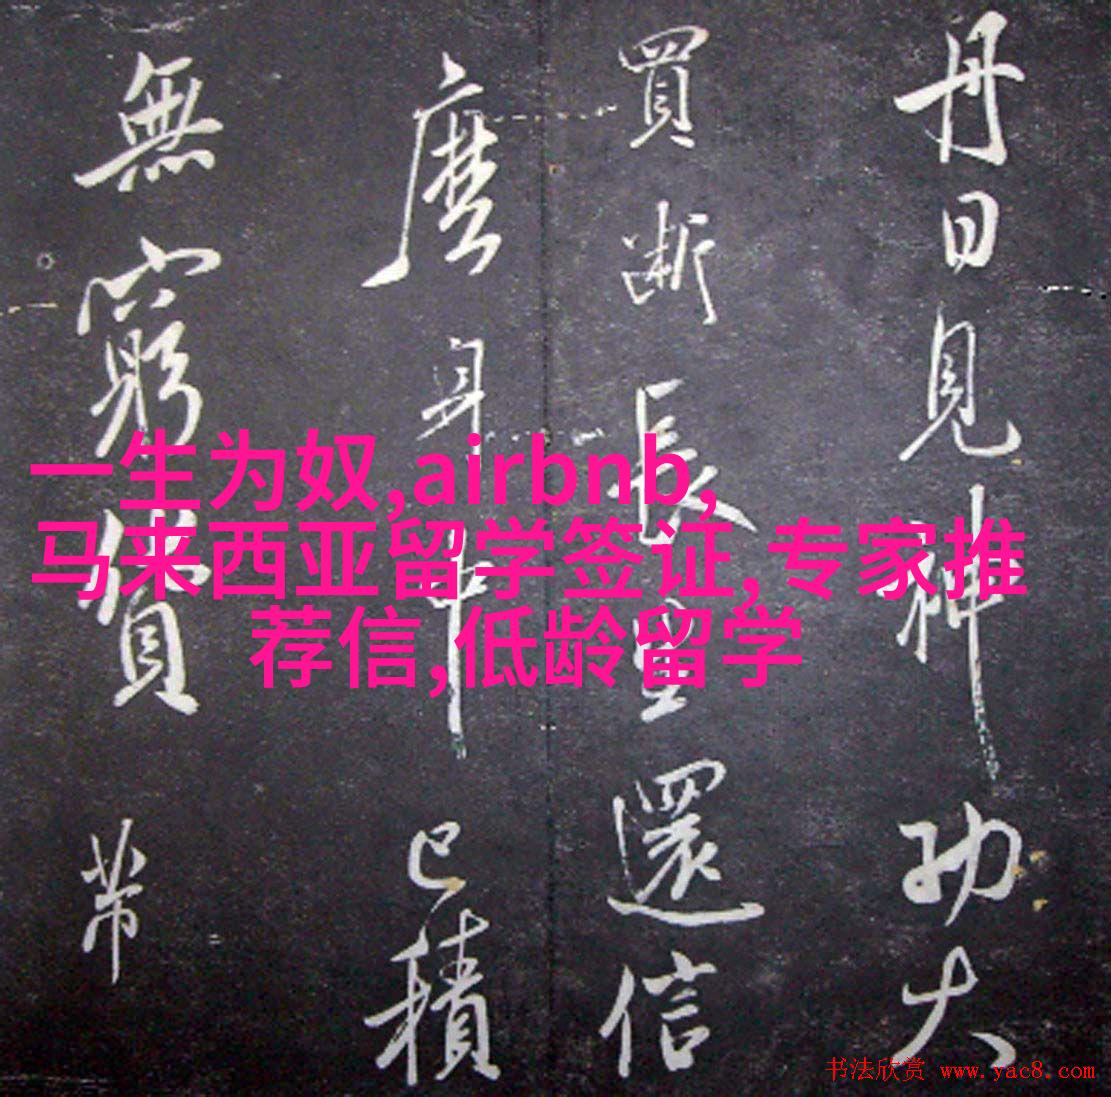 丹日見神功大
買斷長生還信
麼身中已積
無窮貨帶
一生为奴,airbnb,
马来西亚留学签证,专家推
荐信,低龄留学
书法欣赏 www.yac8.com